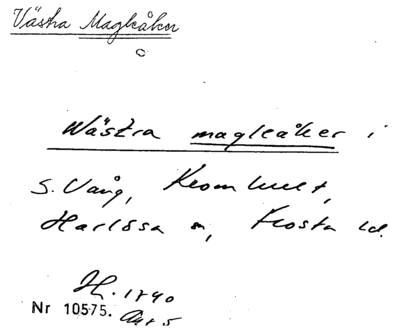 Västra Magleåker
Wästra magleåker i
S. Vång, Kromhult,
Harlössa sn, Frosta hd.
H. 1790
Nr 10575. Akt 5